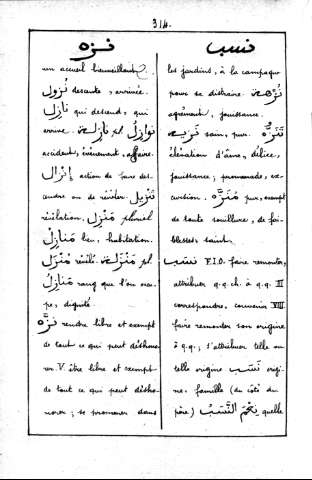 314.
نزه
نسب
un accueil bienveillant.
نُزُول descente, arrivée.
نازِل qui descend, qui
arrive. نازِلة pl. نَوازِل
accident, évènement, affaire.
إنْزال action de faire des-
cendre ou de révéler. تَنْزِيل
révélation. مَنْزِل pluriel
مَنازِل lieu, habitation.
مُنْزَل révélé. مَنْزِلة pl.
مَنازِل rang que l'on occu-
pe, dignité.
نَزَّه rendre libre et exempt
de tout ce qui peut désho-
rer. V. être libre et exempt
de tout ce qui peut désho-
norer; se promener dans
les jardins, à la campagne
pour se distraire. نُزْهة
agrément, jouissance.
نَزِيه sain, pur. تَنَزُّه
élévation d'âme, délice,
jouissance; promenade, ex-
cursion. مُنَزَّه pur, exempt
de toute souillure, de fai-
blesses, saint.
نَسَب F.I.O. faire remonter,
attribuer q.q. ch. à q.q. III
correspondre, convenir VIII
faire remonter son origine
à q.q.; s'attribuer telle ou
telle origine نَسَب origi-
ne, famille (du côté du
père) نِعْمَ النَّسَبُ quelle